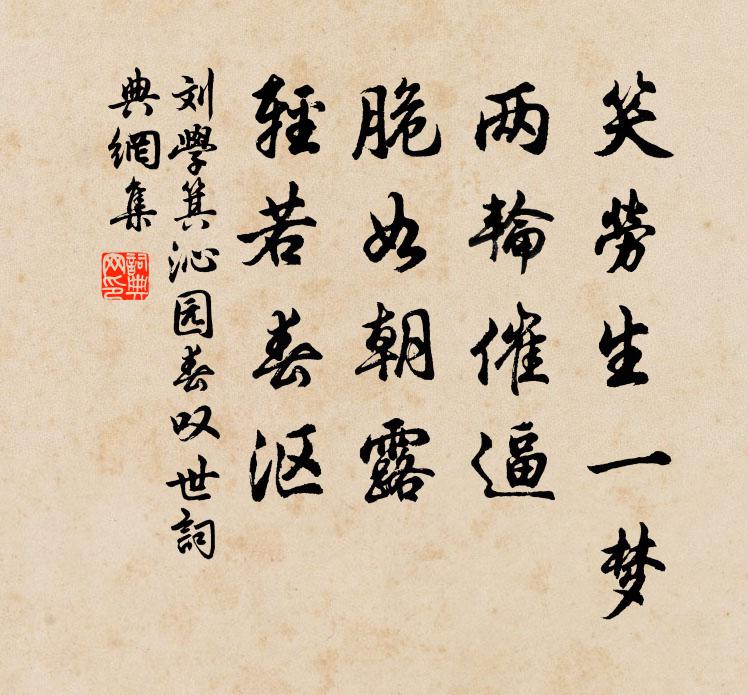 笑劳生一梦
两轮催逼
脆如朝露
轻若春沤
刘学箕沁园春叹世词
典網集
詞典網印